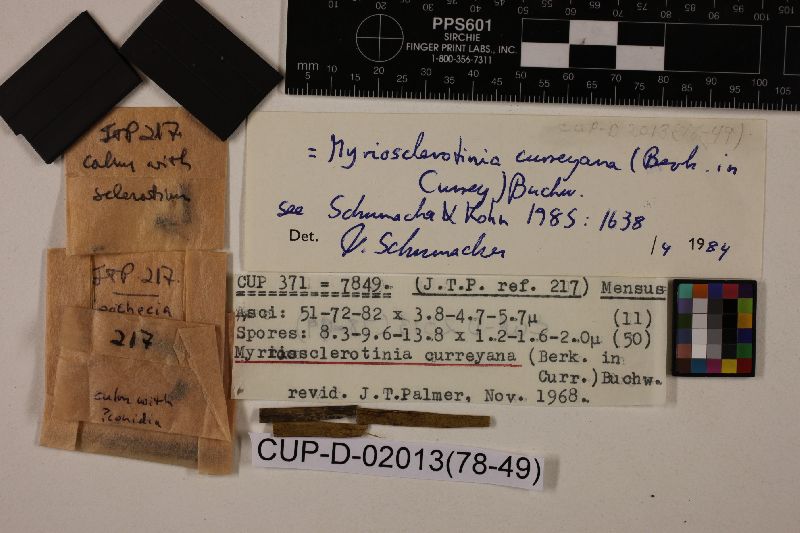 PPS601
SIRCHIE
FINGER PRINT LABS., INC.
1-800-356-7311
mm
5 10 20 30 40 50 60 70 80 90 100 105
J.T.P 217.
culm with
sclerotium
= Myriosclerotinia curreyana (Berk. in
Currey) Buchw.
see Schumacher & Kohn 1985: 1638
Det. T. Schumacher /4 1984
J.T.P 217.
217
culm with
?conidia
CUP 371 = 7849. (J.T.P. ref. 217) Mensus
Asci: 51-72-82 x 3.8-4.7-5.7µ (11)
Spores: 8.3-9.6-13.8 x 1.2-1.6-2.0µ (50)
Myriosclerotinia curreyana (Berk. in
Curr.)Buchw.
revid. J.T.Palmer, Nov. 1968.
CUP-D-02013(78-49)